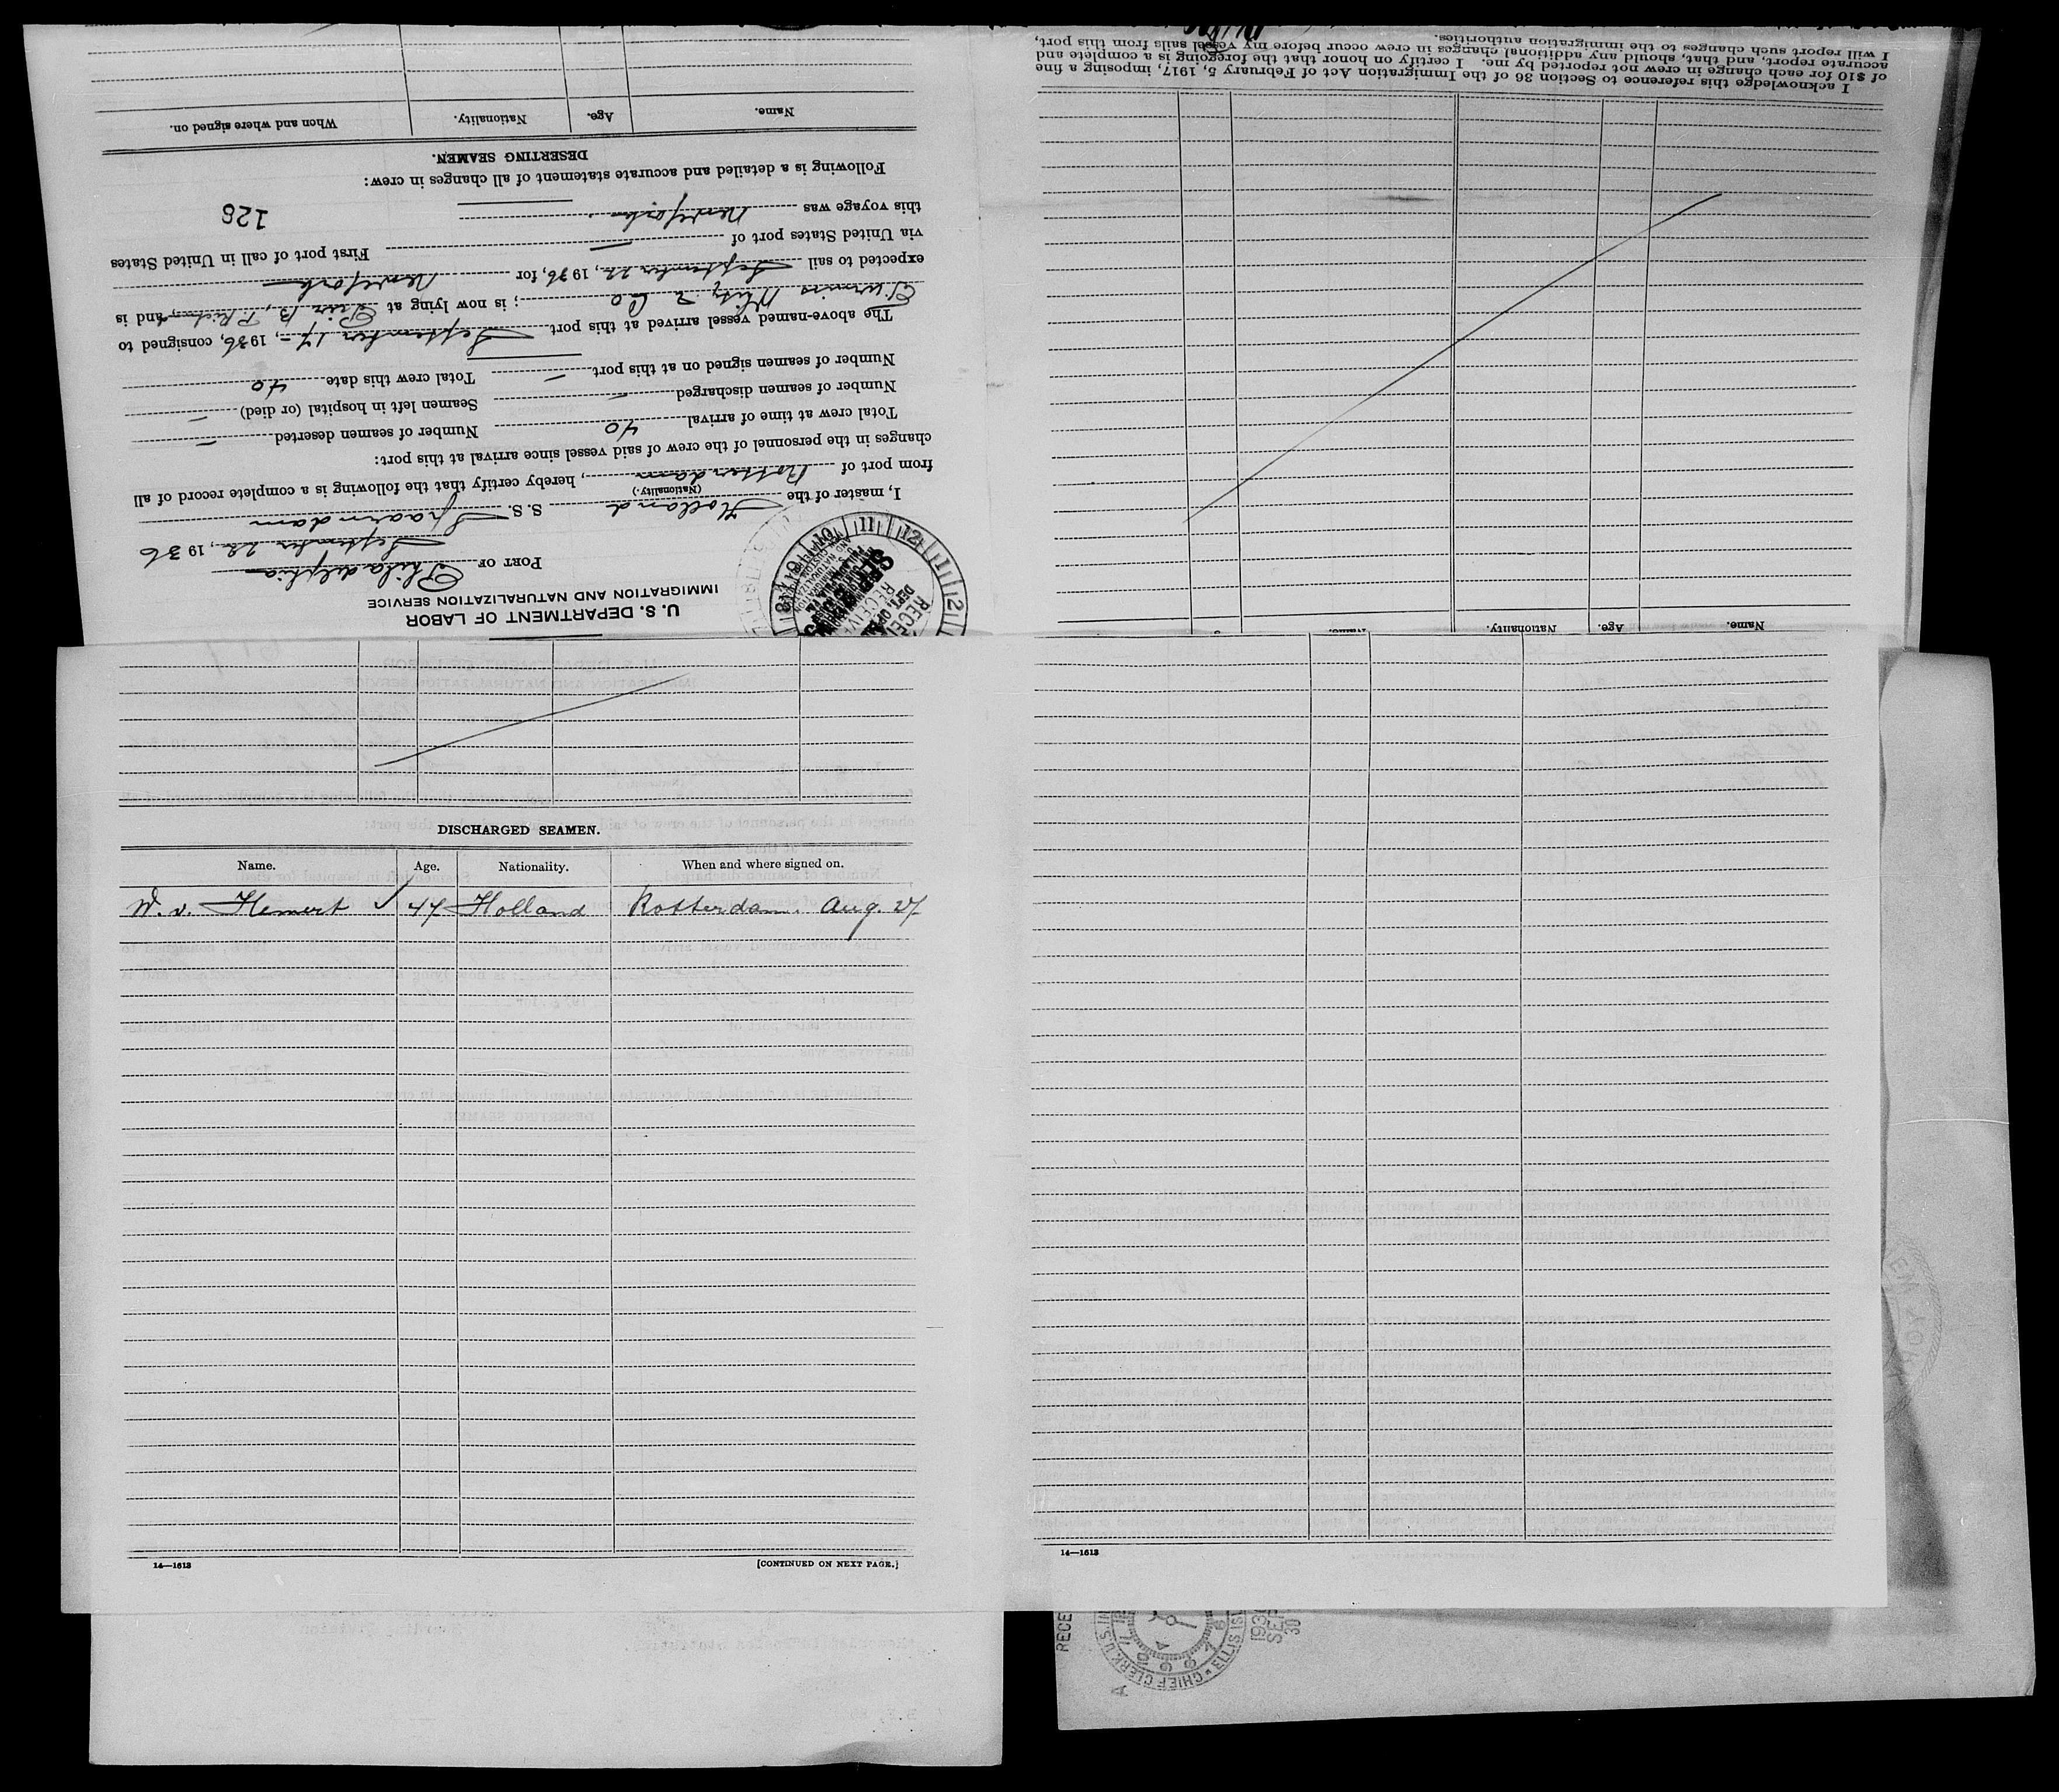 U. S. DEPARTMENT OF LABOR
IMMIGRATION AND NATURALIZATION SERVICE
PORT OF Philadelphia
September 22, 1936
I, master of the Holland S. S. Spaarndam
(Nationality.)
from port of Rotterdam, hereby certify that the following is a complete record of all
changes in the personnel of the crew of said vessel since arrival at this port:
Total crew at time of arrival 40 Number of seamen deserted —
Number of seamen discharged — Seamen left in hospital (or died) —
Number of seamen signed on at this port — Total crew this date 40
The above-named vessel arrived at this port September 17, 1936, consigned to
& Co; is now lying at Pier B, P. Rich, and is
expected to sail September 22, 1936, for New York
via United States port of — First port of call in United States
this voyage was New York.
128
Following is a detailed and accurate statement of all changes in crew:
DESERTING SEAMEN.
Name. Age. Nationality. When and where signed on.
Name. Age. Nationality.
I acknowledge this reference to Section 36 of the Immigration Act of February 5, 1917, imposing a fine
of $10 for each change in crew not reported by me. I certify on honor that the foregoing is a complete and
accurate report, and that, should any additional changes in crew occur before my vessel sails from this port,
I will report such changes to the immigration authorities.
DISCHARGED SEAMEN.
Name. Age. Nationality. When and where signed on.
W. v. Hemert ✓ 47 Holland Rotterdam. Aug. 27
14—1613 [CONTINUED ON NEXT PAGE.]
14—1613